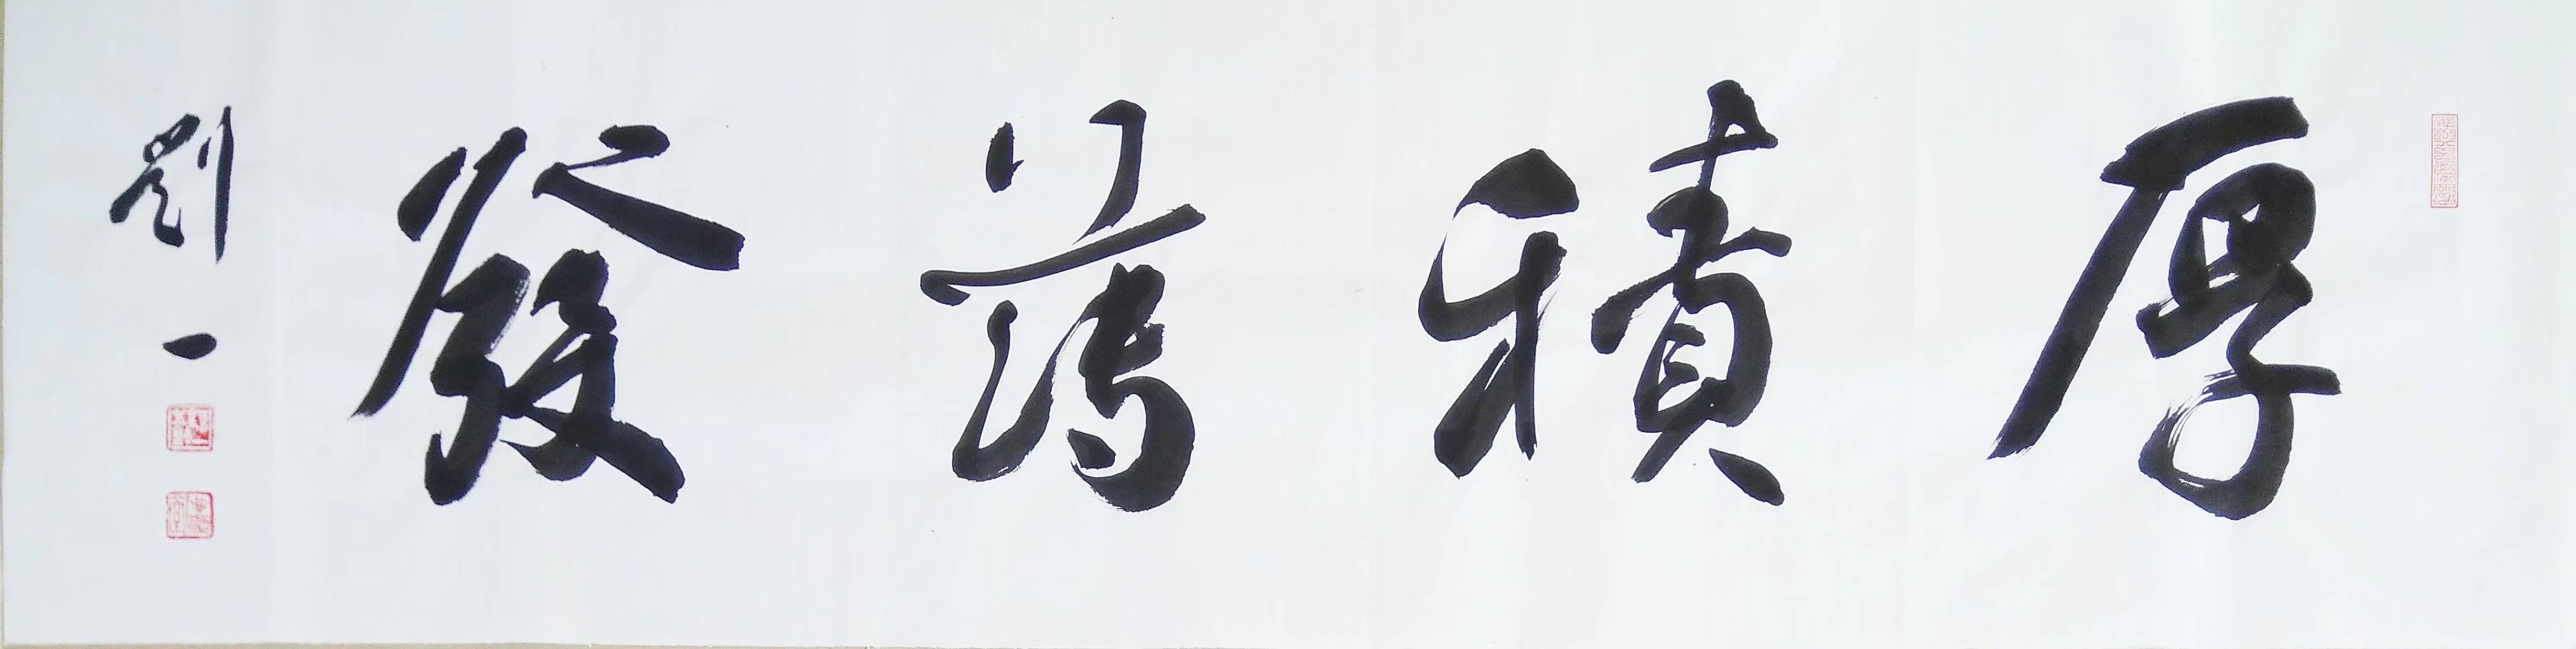 厚積薄發
劉一